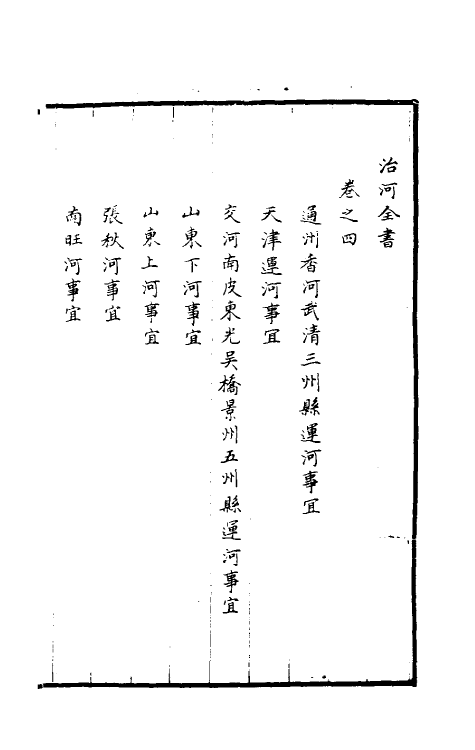 治河全書
卷之四
通州香河武清三州縣運河事宜
天津運河事宜
交河南皮東光吳橋景州五州縣運河事宜
山東下河事宜
山東上河事宜
張秋河事宜
南旺河事宜